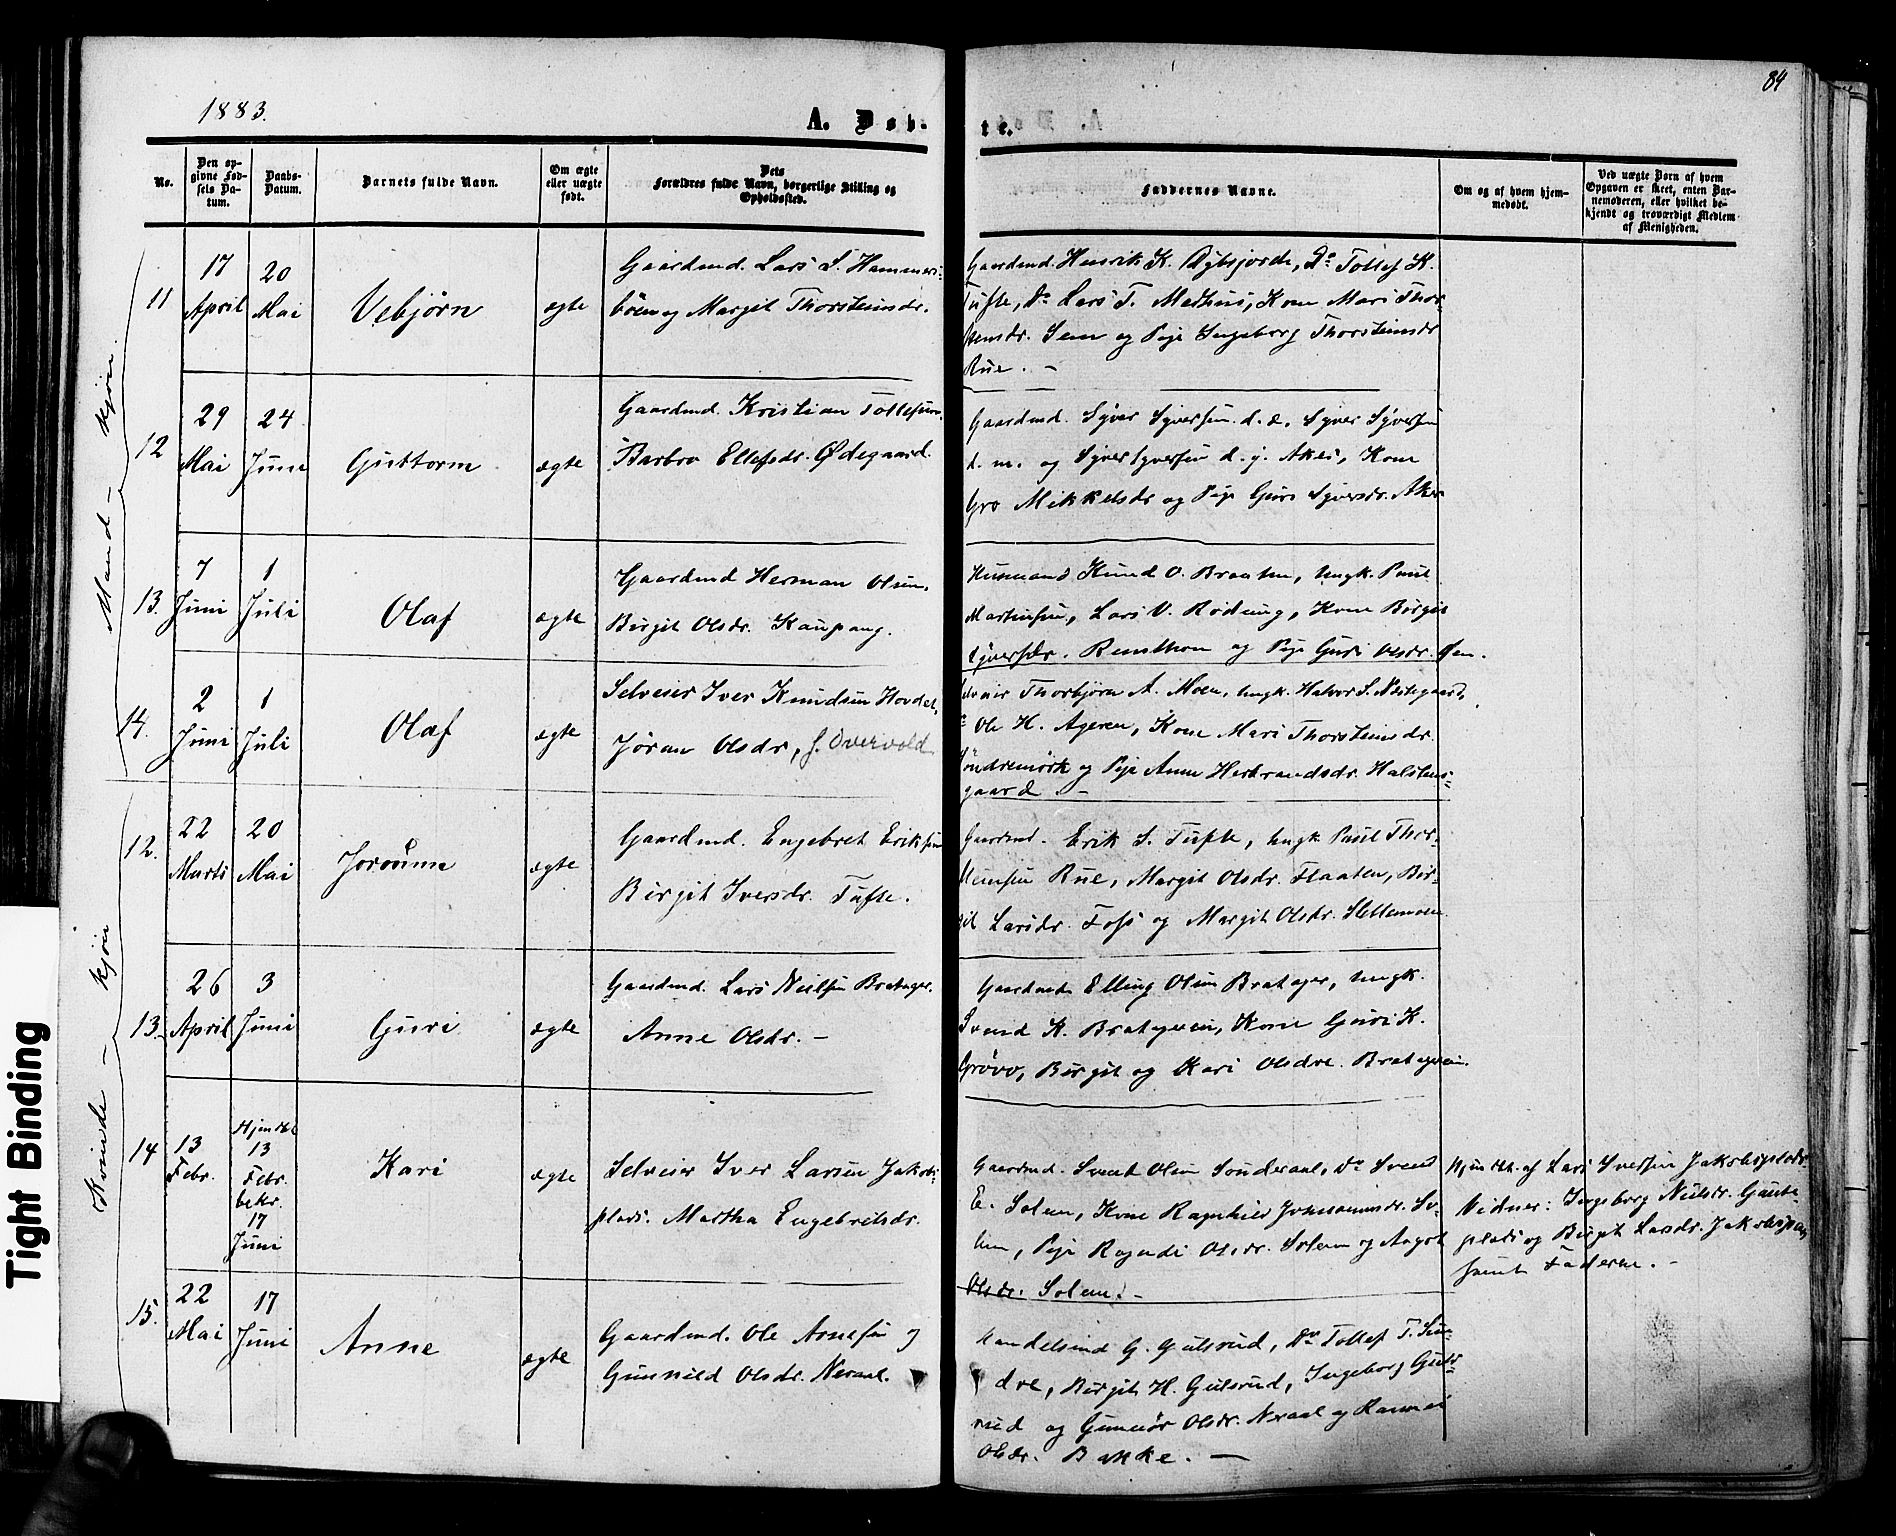 1883.
A. Døb-
te.
84
No.
Den op-
givne Fød-
sels Da-
tum.
Daabs-
Datum.
Barnets fulde Navn.
Om ægte
eller uægte
født.
Dets
Forældres fulde Navn, borgerlige Stilling og
Opholdssted.
Faddernes Navne.
Om og af hvem hjem-
medøbt.
Ved uægte Børn af hvem
Opgaven er skeet, enten Bar-
nemoderen, eller hvilket be-
kjendt og troværdigt Medlem
af Menigheden.
Mand-kjøn.
11
17
April
20
Mai
Vebjørn
ægte
Gaardmd. Lars S. Hammers-
bøen og Margit Thorsteinsdr.
Gaardmd. Henrik K. Dybsjorde, Do Tollef K.
Tufte, Do Lars T. Mathus, Kone Mari Thor-
stensdr. Sem og Pige Ingeborg Thorsteinsdr
Rue. -
12
29
Mai
24
Juni
Guttorm
ægte
Gaardmd. Kristian Tollefsen
Barbro Ellefsdr. Ødegaard.
Gaardmd. Syver Syversen d. æ. Syver Syversen
d. m. og Syver Syversen d. y. Aker, Kone
Gro Mikkelsdr og Pige Guro Syversdr. Aker
13.
7
Juni
1
Juli
Olaf
ægte
Gaardmd Herman Olsen.
Birgit Olsdr. Kaupang.
Husmand Knud O. Braaten, Ungk. Paul
Martinsen, Lars V. Rødung, Kone Birgit
Syversdr. Rensthon og Pige Guri Olsdr. Øen.
14.
2
Juni
1
Juli
Olaf
ægte
Selveier Iver Knudsen Hovdet,
Jøran Olsdr, f. Övervold
Selveier Thorbjørn A. Moen, Ungk. Halvor S. Nestegaard,
Do Ole H. Ageren, Kone Mari Thorsteinsdr.
Söndremörk og Pige Anne Herbrandsdr. Halstens-
gaard. -
Kvinde-kjøn
12.
22
Marts
20
Mai
Jorunne
ægte
Gaardmd. Engebret Eriksen
Birgit Iversdr. Tufte.
Gaardmd. Erik S. Tufte, Ungk Paul Thor-
steinsen Rue, Margit Olsdr. Flaaten, Bir-
git Larsdr. Foss og Margit Olsdr. Slettemoen.
13.
26
April
3
Juni
Guri
ægte
Gaardmd. Lars Nielsen Bratager.
Anne Olsdr. -
Gaardmd Elling Olsen Bratager, Ungk.
Svend K. Brateren, Kone Guri K.
Grøvo, Birgit og Kari Olsdre. Brategren.
14
13
Febr.
Hjemdbt
13
Febr.
bekr.
17
Juni
Kari
ægte
Selveier Iver Larsen Jakobs-
plads. Martha Engebretsdr.
Gaardmd. Svend Olsen Sønderaal, Do Svend
E. Solem, Kone Ragnhild Johannesdr. So-
lem, Pige Ragndi Olsdr. Solem og Aagot
Olsdr. Solem. -
Hjemdbt. af Lars Iversen Jakobsplads.
Vidner: Ingeborg Nielsdr. Gaute-
plads og Birgit Larsdr. Jakobsplads
samt Faderen. -
15.
22
Mai
17
Juni
Anne
ægte
Gaardmd. Ole Arnesen og
Gunnild Olsdr. Neraal.
Handelsmd G. Gulsrud, Do Tollef T. Sun-
dre, Birgit H. Gulsrud, Ingeborg Guls-
rud og Gunnor Olsdr. Neraal og Rannei
Olsdr. Bakke. -
Tight Binding